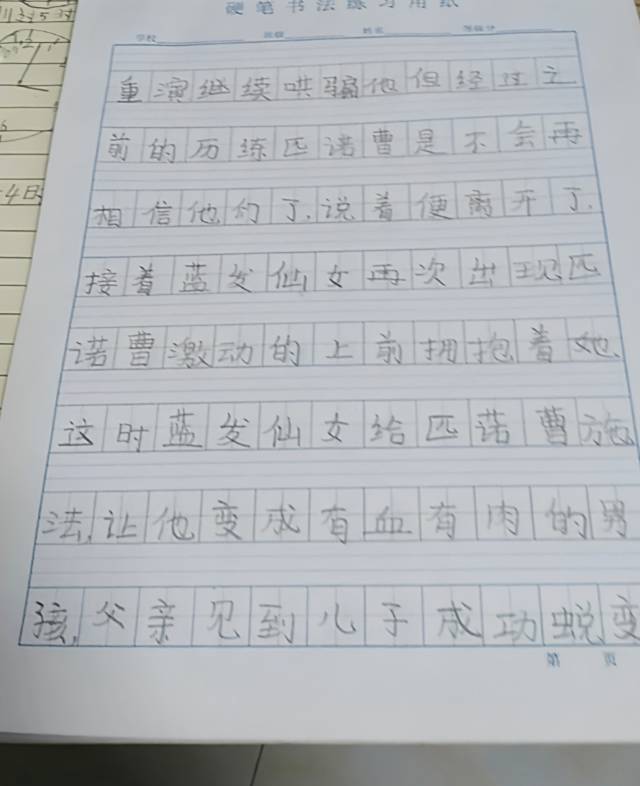 硬笔书法练习用纸
学校 班级 姓名 等级分
重演继续哄骗他但经过之
前的历练匹诺曹是不会再
相信他们了.说着便离开了.
接着蓝发仙女再次出现匹
诺曹激动的上前拥抱着她.
这时蓝发仙女给匹诺曹施
法,让他变成有血有肉的男
孩,父亲见到儿子成功蜕变
第 页